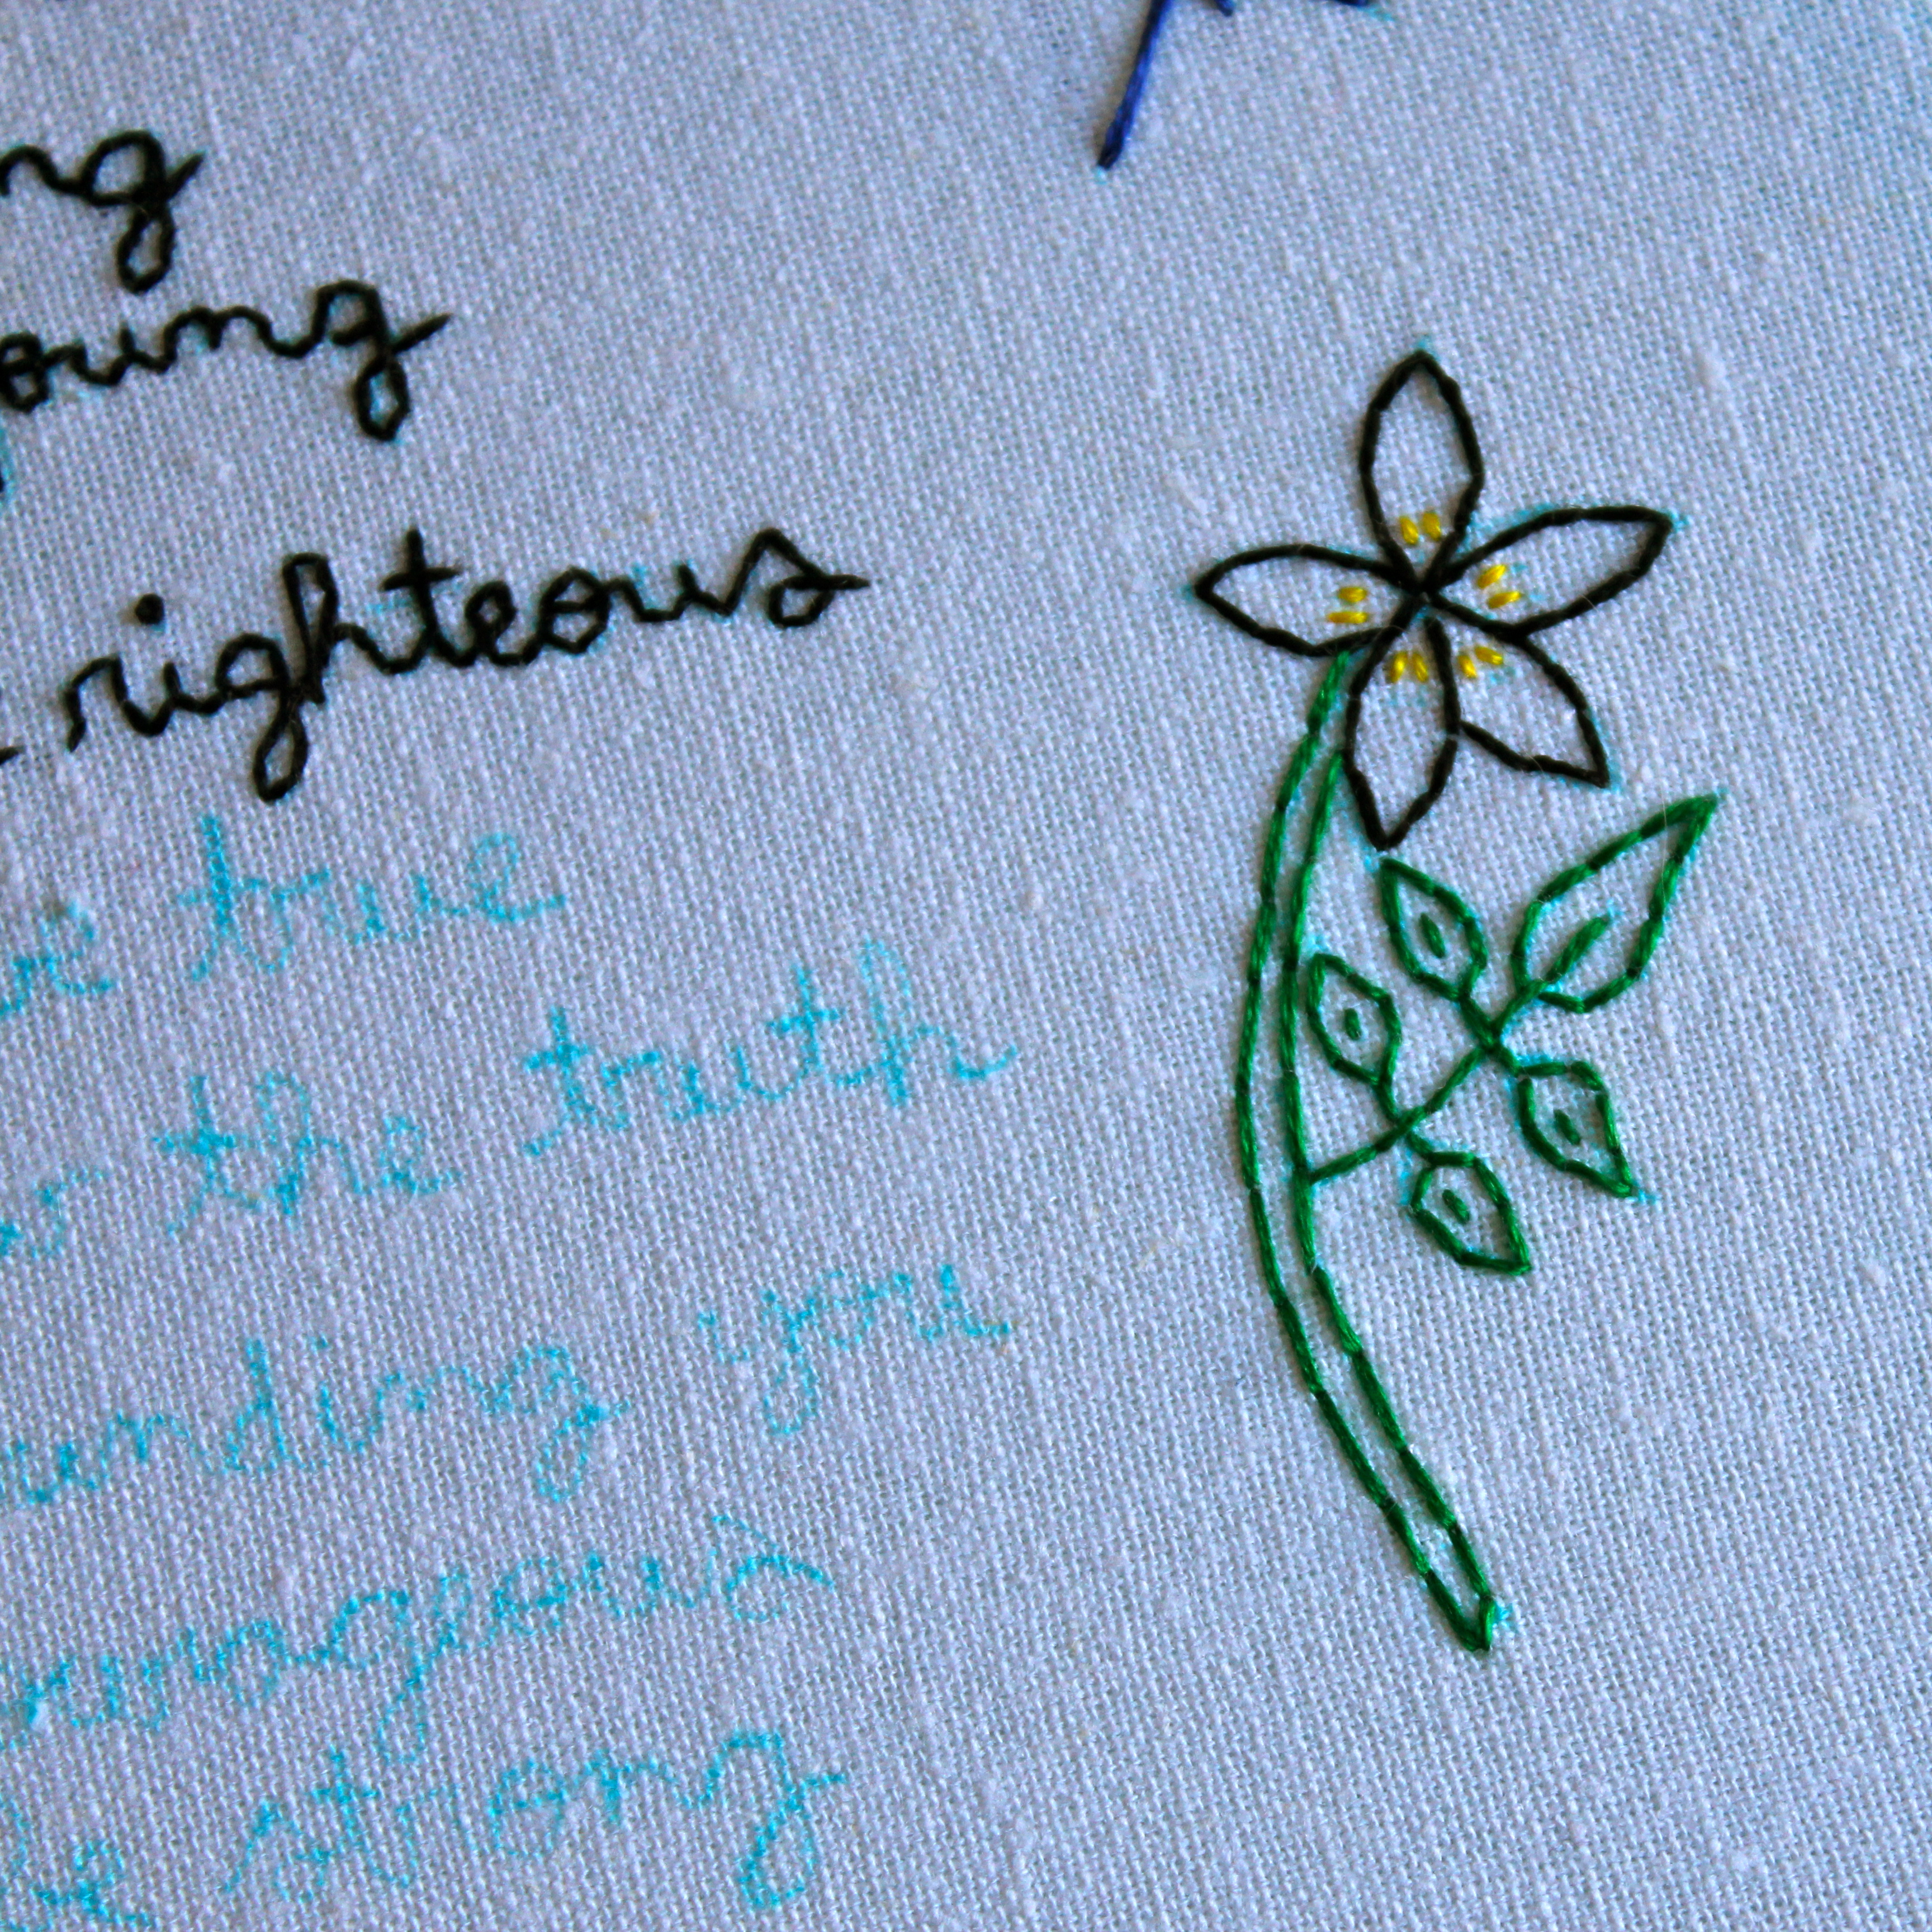 ng
oung
righteous
e true
the truth
unding you
urageous
e strong